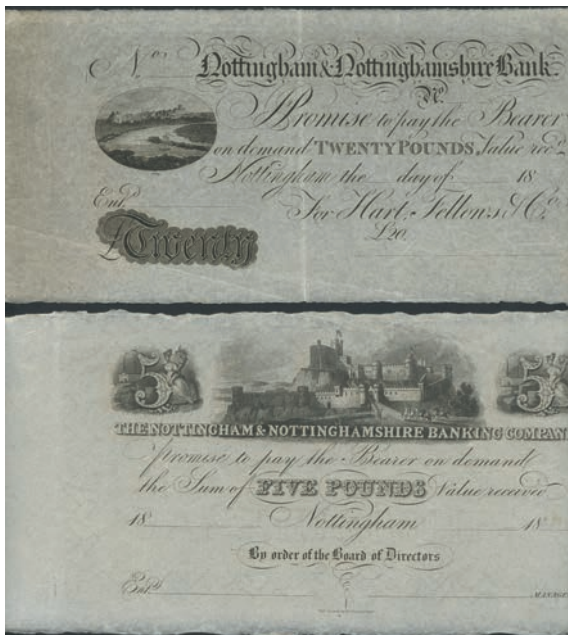 No. Nottingham & Nottinghamshire Bank.
No.
I Promise to pay the Bearer
on demand TWENTY POUNDS, Value recd.
Nottingham the day of 18
Entd. For Hart, Fellows & Co.
£20.
Twenty
5 5
THE NOTTINGHAM & NOTTINGHAMSHIRE BANKING COMPAN
promise to pay the Bearer on demand
the Sum of FIVE POUNDS Value received
18 Nottingham 18
By order of the Board of Directors
Entd. MANAGE